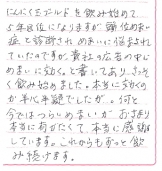 にんにく玉ゴールドを飲み始めて、
5年目位になりますが、頭位めまい
症と診断され めまいに悩まされ
ていたのですが、貴社の広告の中に
めまいに効く。と書いてあり、さっそ
く飲み始めました。本当に効くの
か半心半疑でしたが…。何と
今ではつらいめまいが おさまり
本当にありがたくて、本当に感謝
しています。これからもずっと飲
み続けます。